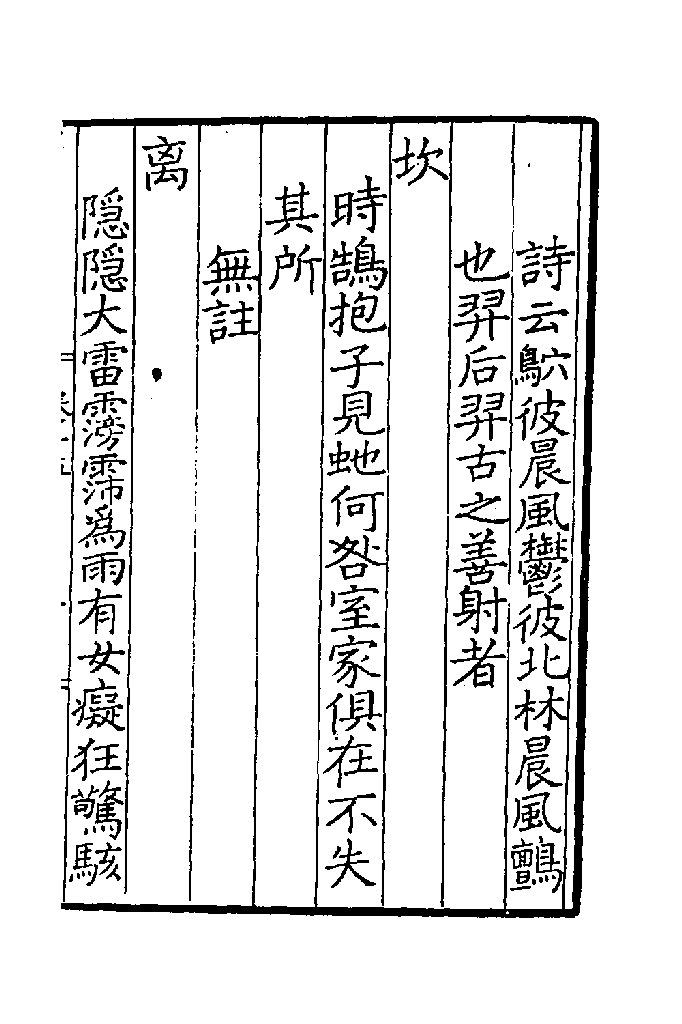 詩云鴥彼晨風鬱彼北林晨風鸇
也羿后羿古之善射者
坎
時鵠抱子見虵何咎室家俱在不失
其所
無註
离
隠隠大雷霶霈爲雨有女癡狂驚駭